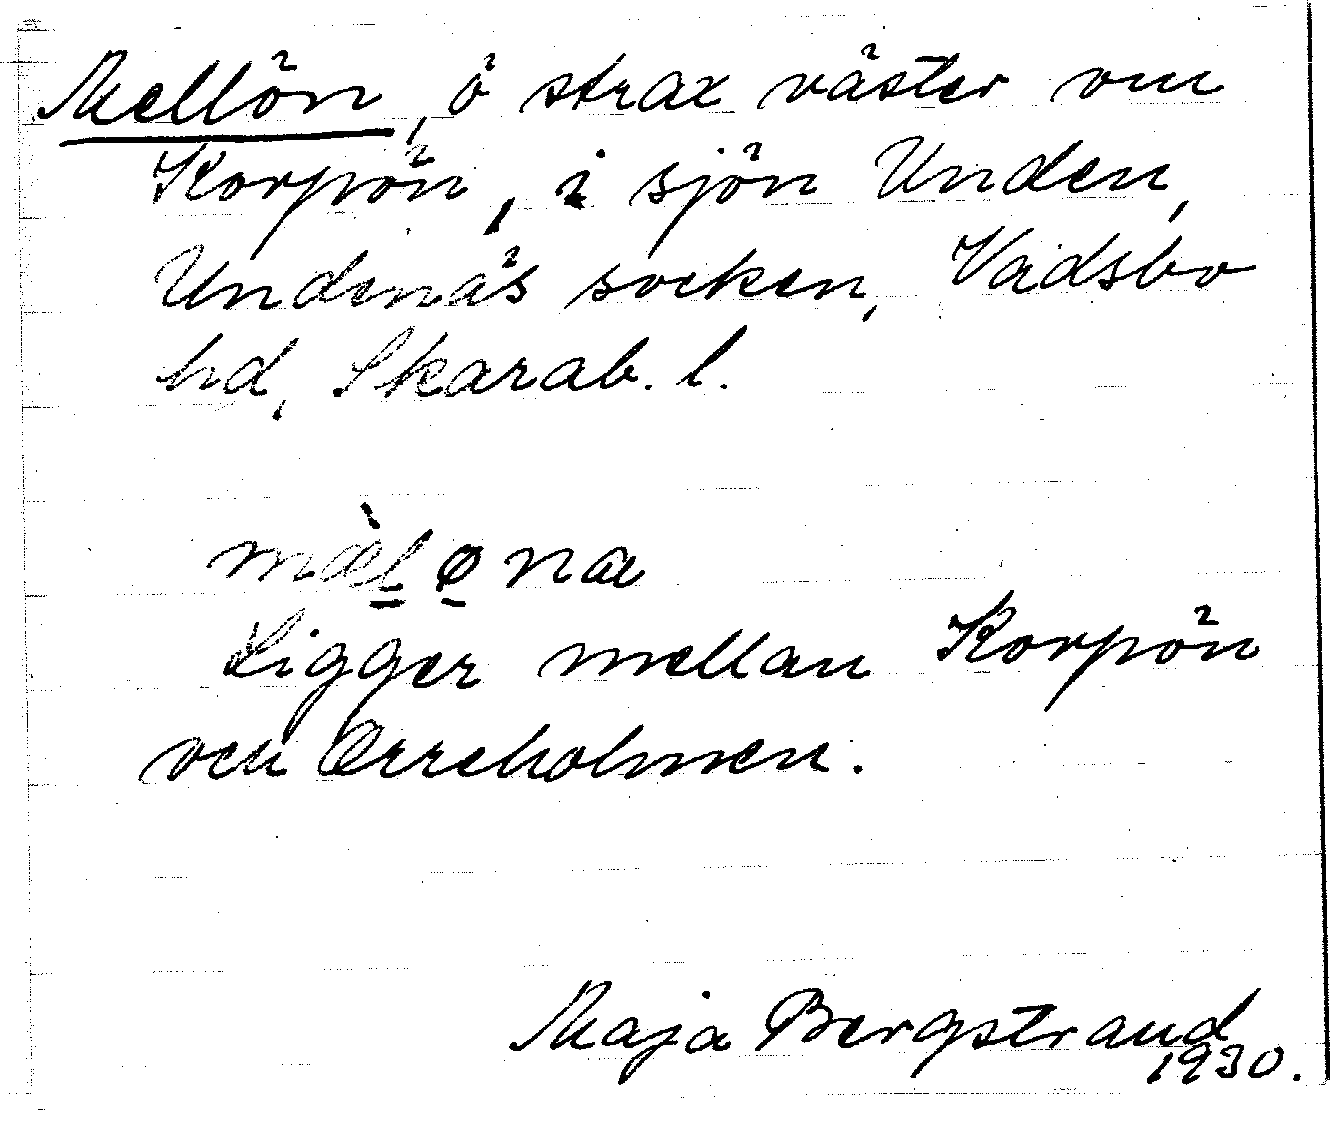 Mellön, ö strax väster om
Korpön, i sjön Unden,
Undenäs socken, Vadsbo
hd, Skarab. l.
mæ̀l̲ø̲na
Ligger mellan Korpön
och Orreholmen.
Maja Bergstrand
1930.